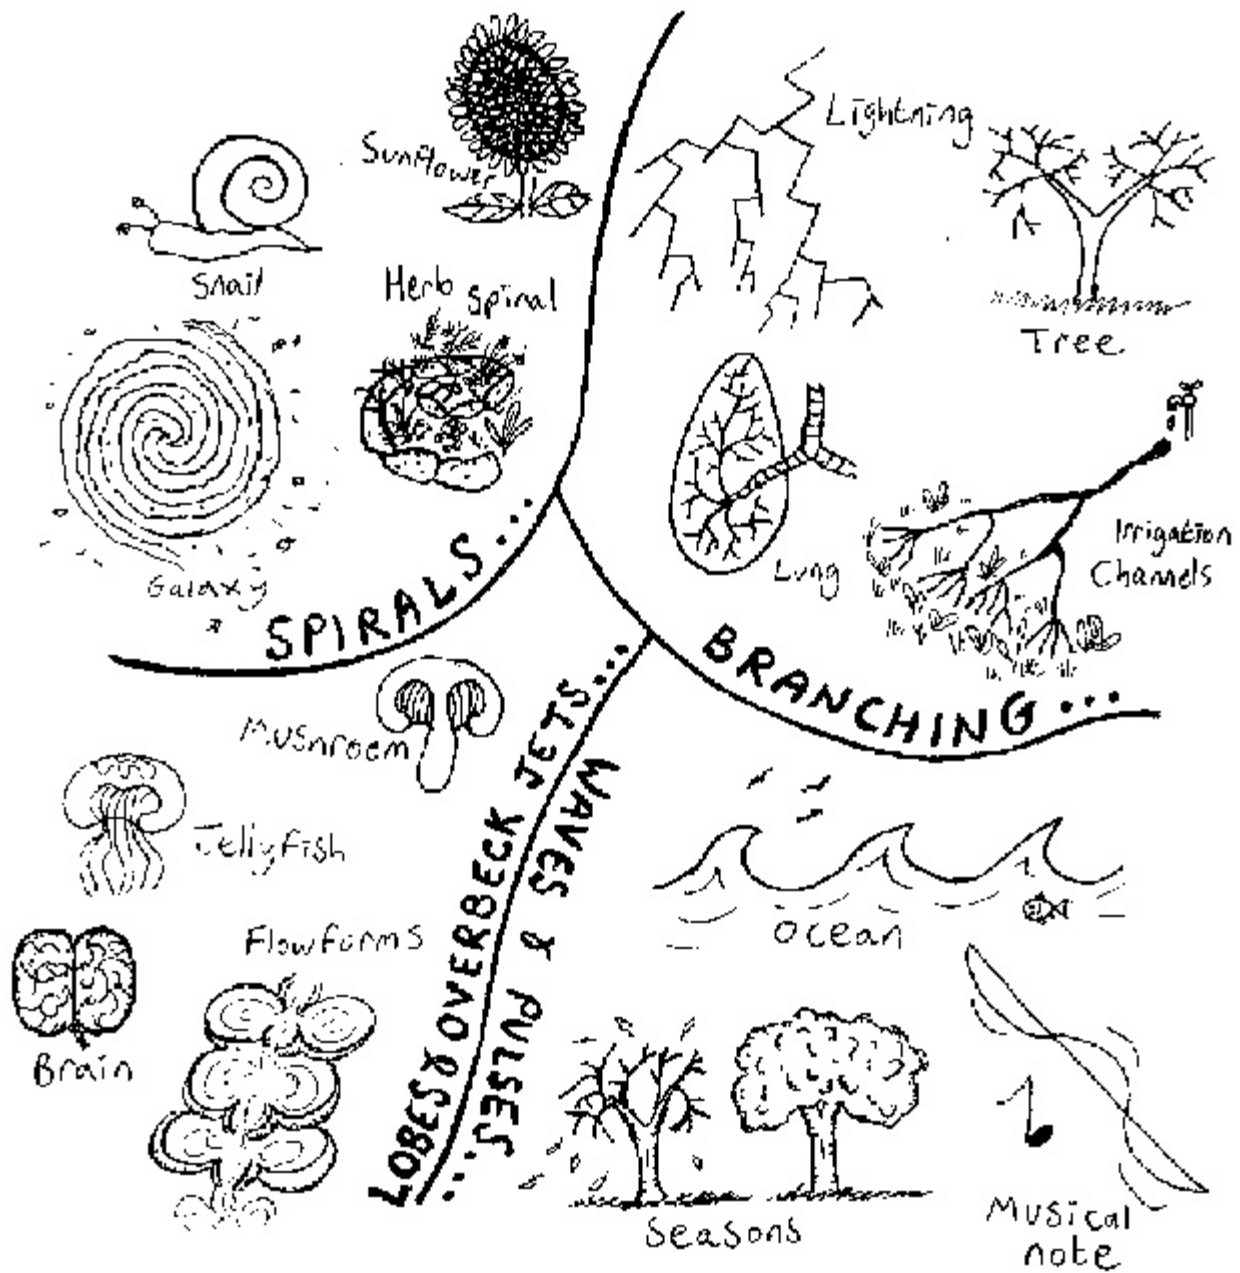 Sunflower
Snail
Herb spiral
Galaxy
SPIRALS...
Lightning
Tree
Lung
Irrigation
Channels
BRANCHING...
Mushroom
Jellyfish
Brain
Flowforms
LOBES & OVERBECK JETS...
WAVES & PULSES...
Ocean
Seasons
Musical
note